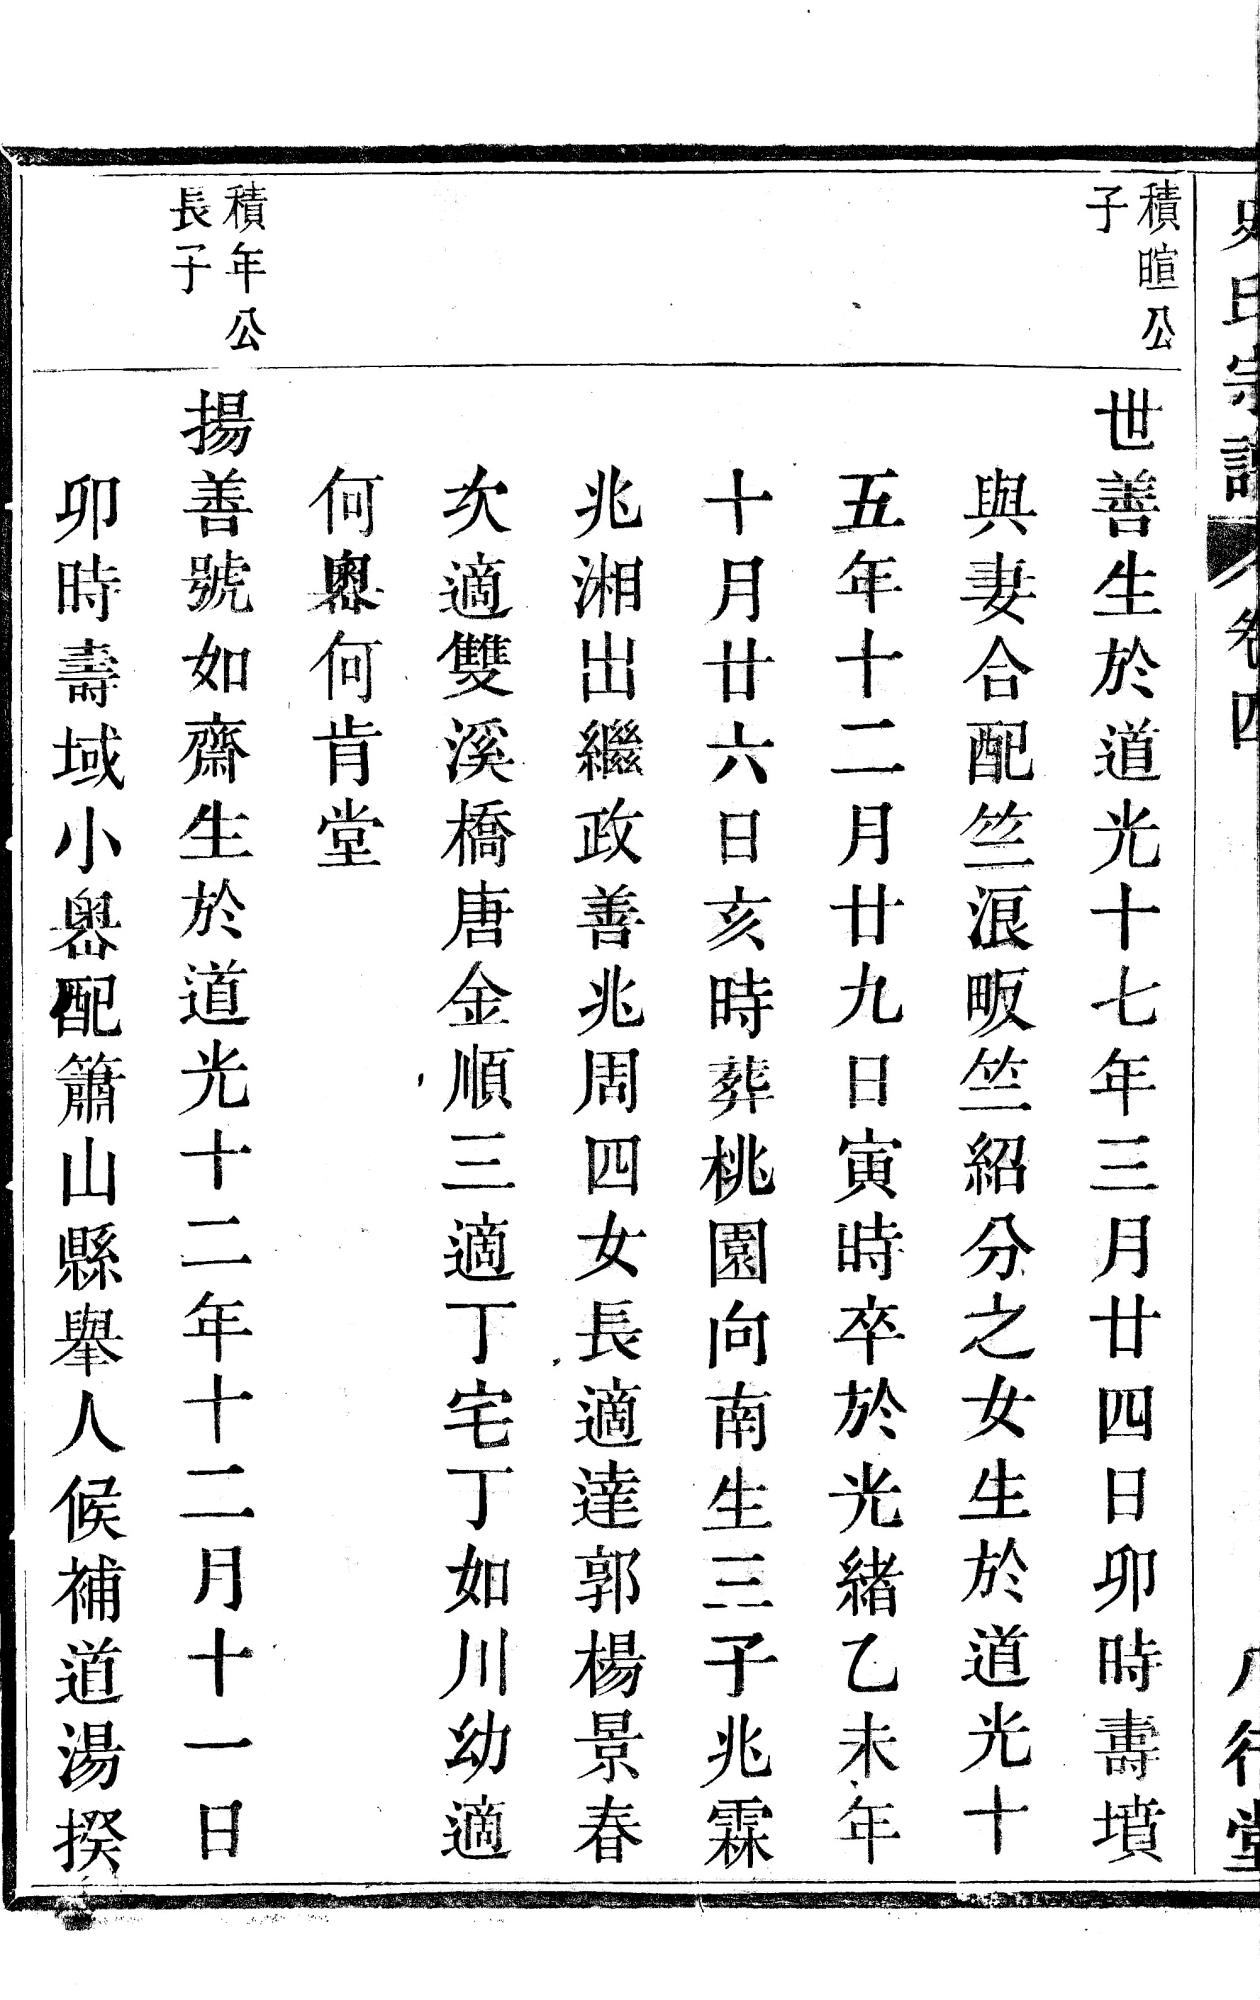 史氏宗譜 卷四 八行堂
積暄公
子
世善生於道光十七年三月廿四日卯時壽墳
與妻合配竺浪畈竺紹分之女生於道光十
五年十二月廿九日寅時卒於光緒乙未年
十月廿六日亥時葬桃園向南生三子兆霖
兆湘出繼政善兆周四女長適達郭楊景春
次適雙溪橋唐金順三適丁宅丁如川幼適
何嶴何肯堂
積年公
長子
揚善號如齋生於道光十二年十二月十一日
卯時壽域小嶴配簫山縣舉人候補道湯揆